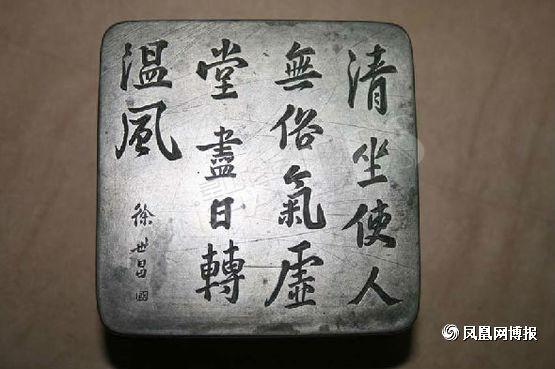 清坐使人
無俗氣虛
堂盡日轉
温風
徐世昌
凤凰网博报